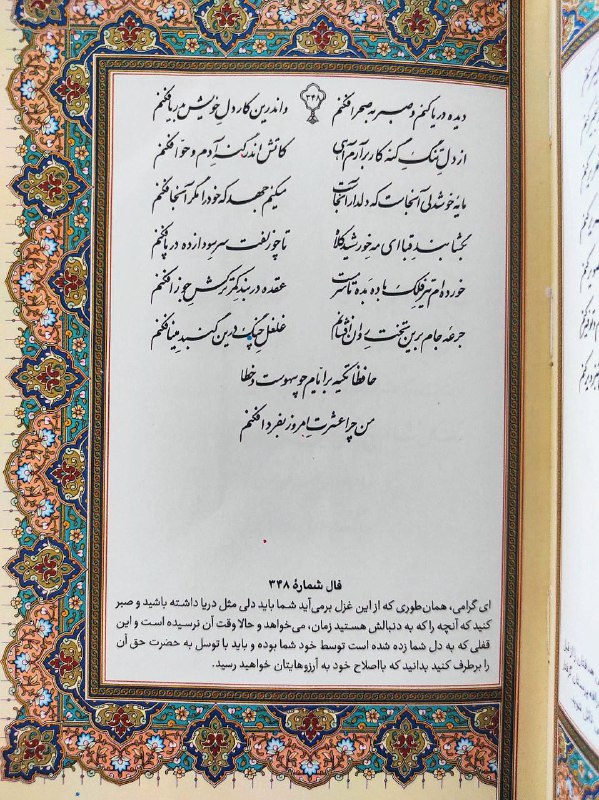 ۳۴۸
دیده دریا کنم و صبر به صحرا فکنم واندرین کار دل خویش به دریا فکنم
از دل تنگ گنه کار برآرم آهی کاتش اندر گنه آدم و حوا فکنم
مایه خوشدلی آنجاست که دلدار آنجاست میکنم جهد که خود را مگر آنجا فکنم
بگشا بند قبا ای مه خورشید کلاه تا چو زلفت سر سودازده در پا فکنم
خورده‌ام تیر فلک باده بده تا سرمست عقده در بند کمر ترکش جوزا فکنم
جرعه جام برین تخت روان افشانم غلغل چنگ درین گنبد مینا فکنم
حافظا تکیه بر ایام چو سهوست و خطا
من چرا عشرت امروز بفردا فکنم
فال شمارهٔ ۳۴۸
ای گرامی، همان‌طوری که از این غزل برمی‌آید شما باید دلی مثل دریا داشته باشید و صبر
کنید که آنچه را که به دنبالش هستید زمان، می‌خواهد و حالا وقت آن نرسیده است و این
قفلی که به دل شما زده شده است توسط خود شما بوده و باید با توسل به حضرت حق آن
را برطرف کنید بدانید که بااصلاح خود به آرزوهایتان خواهید رسید.